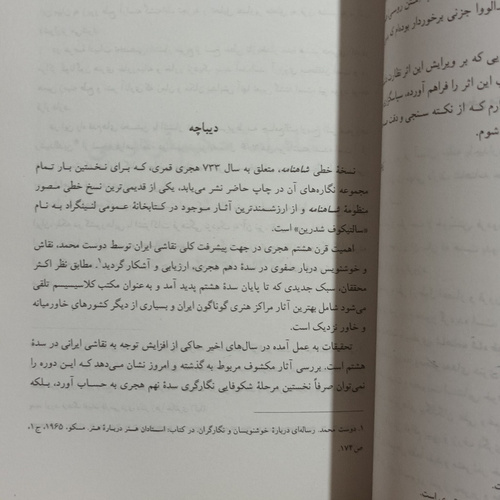 دیباچه
نسخهٔ خطی شاهنامه، متعلق به سال ۷۳۳ هجری قمری، کـه بـرای نخستین بـار تـمام
مجموعه نگاره‌های آن در چاپ حاضر نشر می‌یابد، یکی از قدیمی‌ترین نسخ خطی مصور
منظومهٔ شاهنامه و از ارزشمندترین آثـار مـوجود در کـتابخانهٔ عـمومی لنـینگراد بـه نـام
«سالتیکوف شدرین» است.
اهمیت قرن هشتم هجری در جهت پیشرفت کلی نقاشی ایران توسط دوست محمد، نقاش
و خوشنویس دربار صفوی در سدهٔ دهم هجری، ارزیابی و آشکار گردید۱. مطابق نظر اکثر
محققان، سبک جدیدی که تا پایان سدهٔ هشتم پدید آمد و به‌عنوان مکتب کلاسیسیسم تلقی
می‌شود شامل بهترین آثار مراکز هنری گوناگون ایران و بسیاری از دیگر کشورهای خاورمیانه
و خاور نزدیک است.
تحقیقات به عمل آمده در سال‌های اخیر حاکی از افزایش توجه به نقاشی ایرانی در سدهٔ
هشتم است. بررسی آثار مکشوف مربوط به گذشته و امروز نشان می‌دهد کـه ایـن دوره را
نمی‌توان صرفاً نخستین مرحلهٔ شکوفایی نگارگری سدهٔ نهم هجری به حساب آورد، بـلکه
۱. دوست محمد. رساله‌ای دربارهٔ خوشنویسان و نگارگران. در کتاب: استـادان هـنر دربـارهٔ هـنر. مسکو، ۱۹۶۵، ج۱،
ص۱۷۴.
الووا جزنی برخوردار بوده‌ام که
یی که بر ویرایش این اثر نظارت
ب این اثر را فراهم آورده، سپاسگزارم
ارم کـه از نکته سنجی و دقت
شوم.